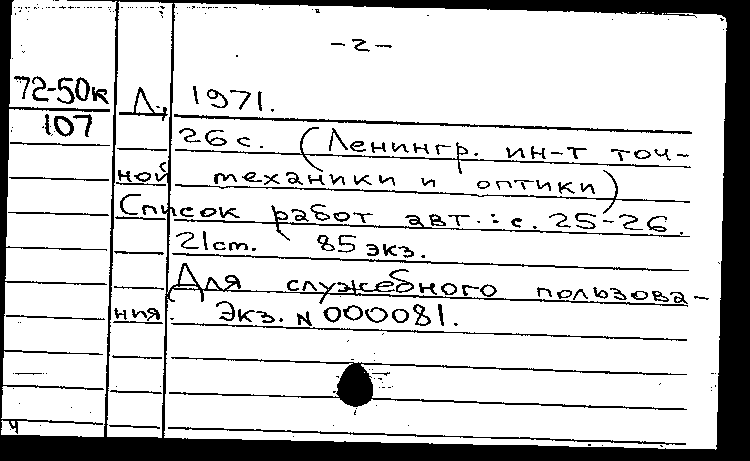 -2-
72-50к Л., 1971.
107
26 с. (Ленингр. ин-т точ-
ной механики и оптики)
Список работ авт.: с. 25-26.
21 см. 85 экз.
Для служебного пользова-
ния. Экз. N 000081.
ч